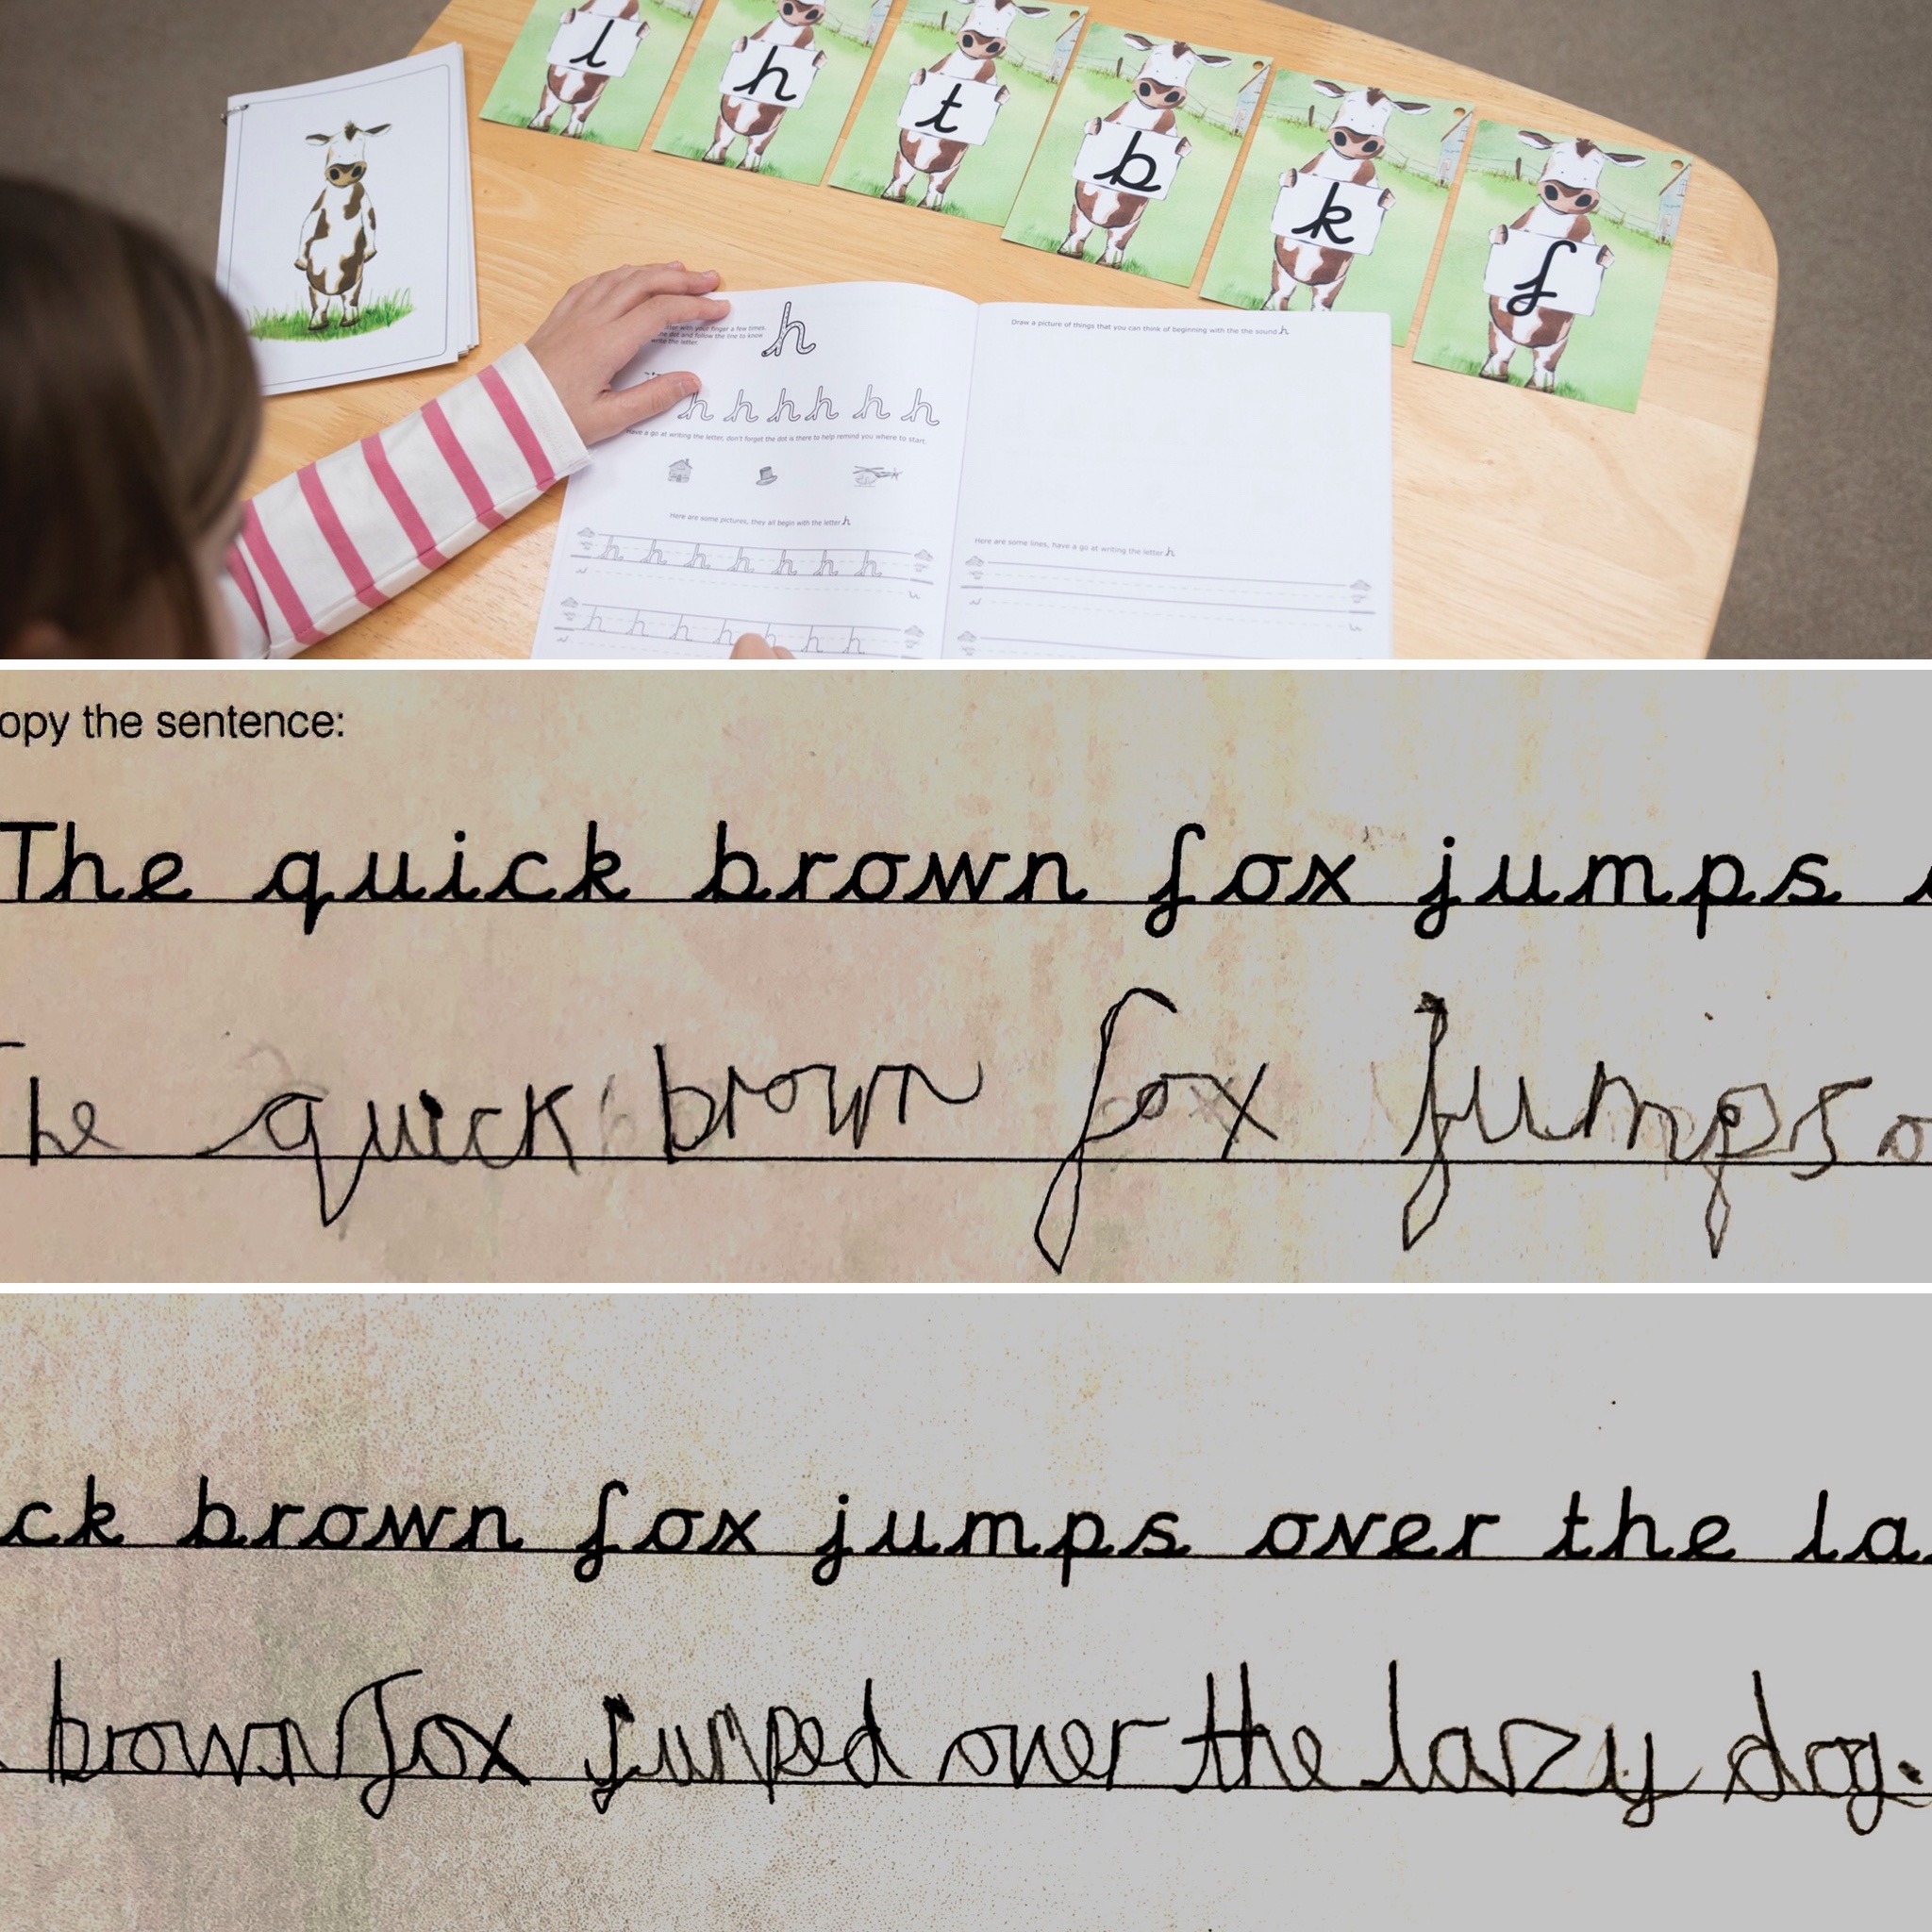 l h t b k f
h
letter with your finger a few times.
the dot and follow the line to know
write the letter.
h h h h h h
Have a go at writing the letter, don't forget the dot is there to help remind you where to start.
Here are some pictures, they all begin with the letter h
h h h h h h h
h h h h h h h
Draw a picture of things that you can think of beginning with the the sound h
Here are some lines, have a go at writing the letter h
opy the sentence:
The quick brown fox jumps
The quick brown fox jumps o
ck brown fox jumps over the la
brown fox jumped over the lazy dog.